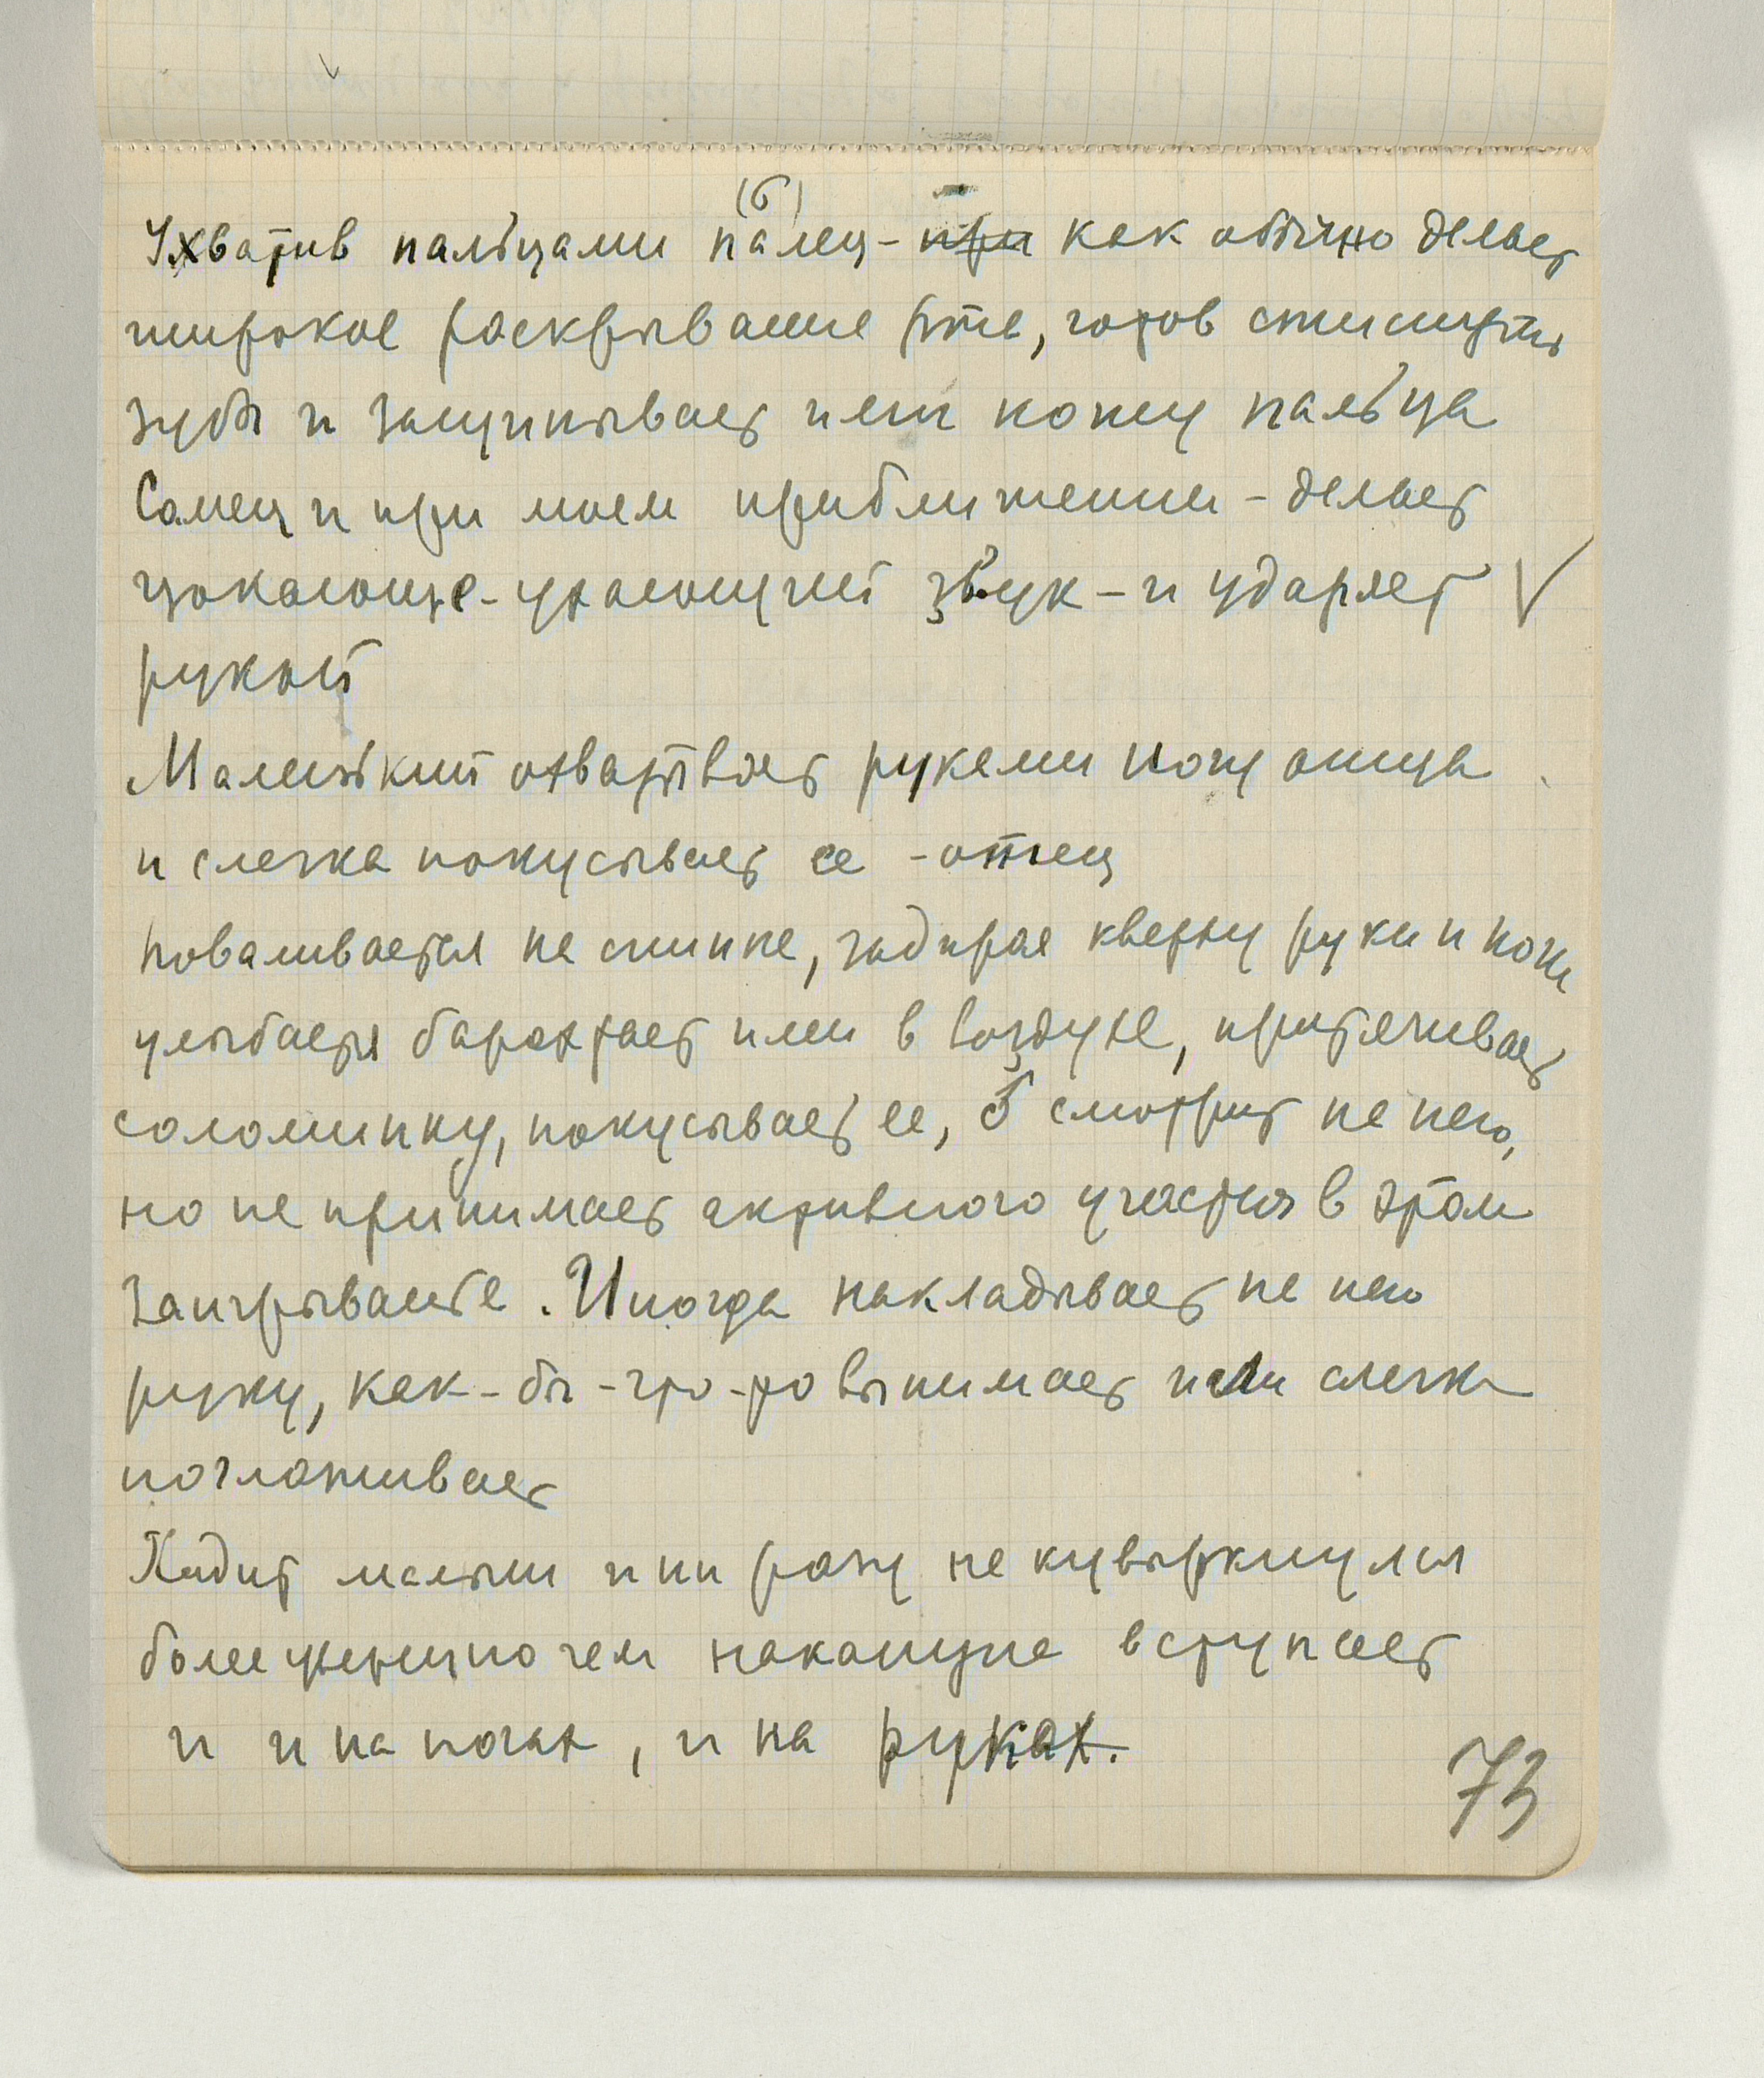 (б)
Ухватив пальцами палец - при как обычно делает
широкое раскрывание рта, готов стиснуть
зубы и защипывает ими кожу пальца
Самец и при моем приближении - делает
цокающе-ухающий звук - и ударяет V
рукой
Маленький охватывает руками ногу отца
и слегка покусывает ее - отец
поваливается на спинке, задирая кверху руки и ноги
улыбается барахтает ими в воздухе, притягивает
соломинку, покусывает ее, б смотрит на него,
но не принимает активного участия в этом
заигрывание. Иногда накладывает на него
руку, как-бы-что-то вынимает или слегка
поглаживает
Ходит малыш и ни разу не кувыркнулся
более уверенно чем накануне вступает
и и на ногах, и на руках.
73